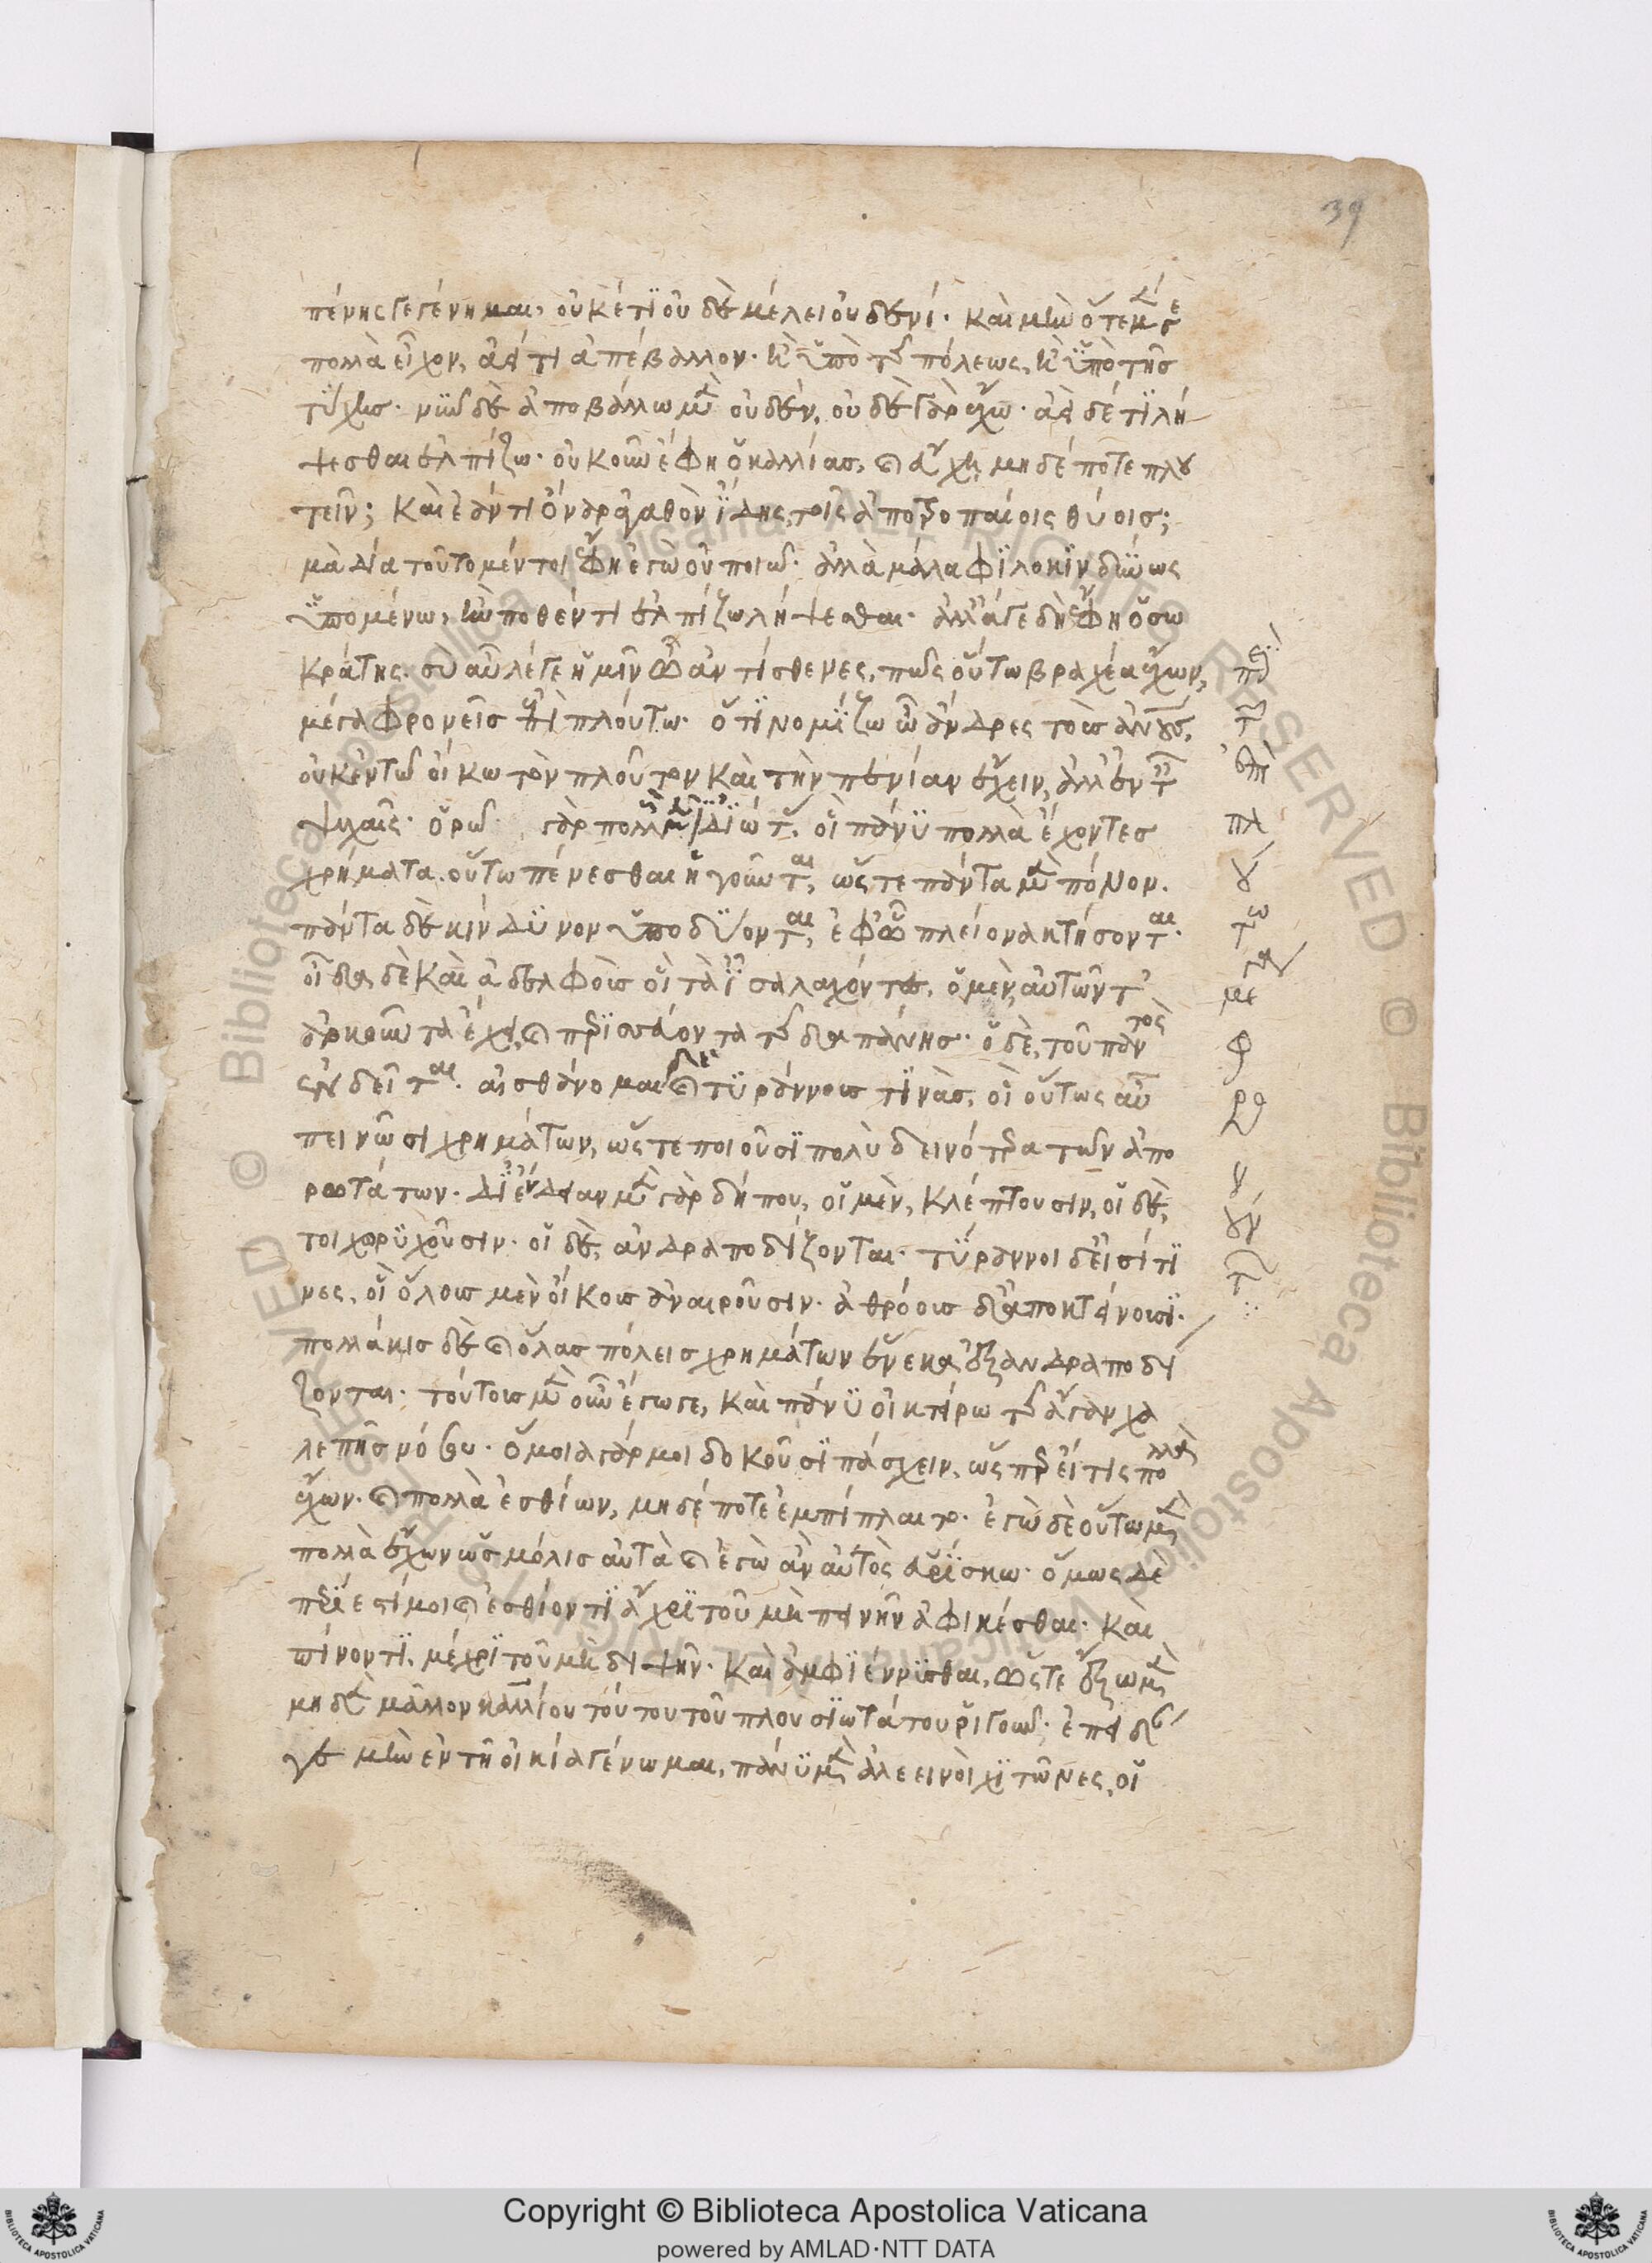 39
πένης γεγένημαι, οὐκέτι οὐδὲ μέλει οὐδενί· καὶ μὴν ὅτε μὲν
πολλὰ εἶχον, ἀεί τι ἀπέβαλλον· ἢ ὑπὸ τῆς πόλεως, ἢ ὑπὸ τῆς
τύχης· νῦν δὲ ἀποβάλλω μὲν οὐδέν, οὐδὲ γὰρ ἔχω· ἀεὶ δέ τι λή
ψεσθαι ἐλπίζω· οὐκοῦν ἔφη ὁ καλλίας, καὶ εὔχῃ μηδέποτε πλου
τεῖν; καὶ ἐάν τι ὄναρ ἀγαθὸν ἴδῃς, τοῖς ἀποτροπαίοις θύεις;
μὰ δία τοῦτο μέντοι ἔφη ἐγὼ οὐ ποιῶ· ἀλλὰ μάλα φιλοκινδύνως
ὑπομένω, ἤν ποθέν τι ἐλπίζω λήψεσθαι· ἀλλ' ἄγε δὴ ἔφη ὁ σω
κράτης· σὺ αὖ λέγε ἡμῖν ὦ ἀντίσθενες, πῶς οὕτω βραχέα ἔχων,
μέγα φρονεῖς ἐπὶ πλούτω· ὅτι νομίζω ὦ ἄνδρες τοὺς ἀνους,
οὐκ ἐν τῶ οἴκω τὸν πλοῦτον καὶ τὴν πενίαν ἔχειν, ἀλλ' ἐν τ
ψυχαῖς· ὁρῶ γὰρ πολλοὺς ἰδιώτας, οἳ πάνυ πολλὰ ἔχοντες
χρήματα. οὕτω πένεσθαι ἡγοῦνται, ὥστε πάντα μὲν πόνον.
πάντα δὲ κίνδυνον ὑποδύονται, ἐφ' ὧ πλείονα κτήσονται·
οἶδα δὲ καὶ ἀδελφοὺς οἳ τὰ ἴσα λαχόντες, ὁ μὲν αὐτῶν τ
ἀρκοῦντα ἔχει, καὶ περισσεύοντα τῆς δαπάνης· ὁ δὲ, τοῦ παντὸς
ἐνδεῖται. αἰσθάνομαι δὲ καὶ τυράννους τινὰς, οἳ οὕτως αὖ
πεινῶσι χρημάτων, ὥστε ποιοῦσι πολὺ δεινότερα τῶν ἀπο
ρωτάτων· δι' ἔνδειαν μὲν γὰρ δήπου, οἱ μὲν, κλέπτουσιν, οἱ δὲ,
τοιχωρυχοῦσιν· οἱ δὲ, ἀνδραποδίζονται· τύραννοι δ' εἰσί τι
νες, οἳ ὅλους μὲν οἴκους ἀναιροῦσιν· ἀθρόους δ' ἀποκτείνουσι·
πολλάκις δὲ καὶ ὅλας πόλεις χρημάτων ἕνεκα ἐξανδραποδί
ζονται· τούτους μὲν οὖν ἔγωγε, καὶ πάνυ οἰκτείρω τῆς ἄγαν χα
λεπῆς νόσου· ὅμοια γάρ μοι δοκοῦσι πάσχειν, ὥσπερ εἴ τις πολλὰ
ἔχων· καὶ πολλὰ ἐσθίων, μηδέποτε ἐμπίπλαιτο· ἐγὼ δὲ οὕτω μὲν
πολλὰ ἔχων ὡς μόλις αὐτὰ καὶ ἐγὼ ἂν αὐτὸς εὑρίσκω· ὅμως δὲ
περίεστί μοι καὶ ἐσθίοντι ἄχρι τοῦ μὴ πεινῆν ἀφικέσθαι· καὶ
πίνοντι, μέχρι τοῦ μὴ διψῆν· καὶ ἀμφιέννυσθαι, ὥστε ἔξω μὲν
μηδὲν μᾶλλον καλλίου τούτου τοῦ πλουσιωτάτου ῥιγοῦν· ἐπειδάν
γε μὴν ἐν τῇ οἰκία γένωμαι, πάνυ μὲν ἀλεεινοὶ χιτῶνες, οἱ
Copyright © Biblioteca Apostolica Vaticana
powered by AMLAD·NTT DATA